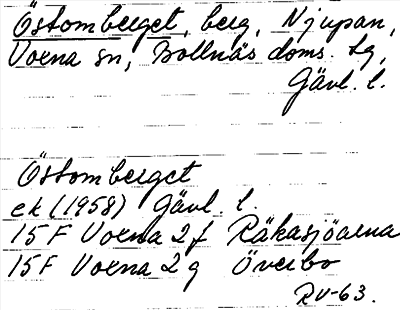 Östomberget, berg, Njupan,
Voxna sn, Bollnäs doms. tg,
Gävl. l.
Östomberget
ek (1958) Gävl. l.
15 F Voxna 2 f Räkasjöarna
15 F Voxna 2 g Överbo
RV-63.